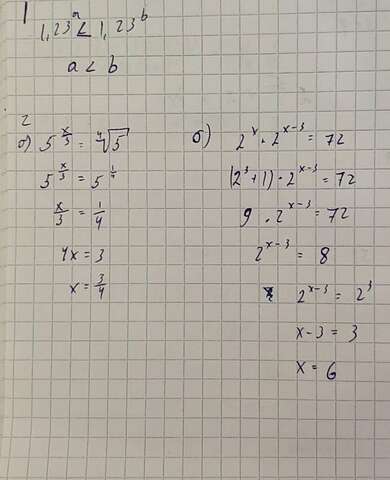 1
1,23^a < 1,23^b
a < b
2
а) 5^(x/3) = ⁴√5
5^(x/3) = 5^(1/4)
x/3 = 1/4
4x = 3
x = 3/4
б) 2^x · 2^(x-3) = 72
(2^3+1) · 2^(x-3) = 72
9 · 2^(x-3) = 72
2^(x-3) = 8
2^(x-3) = 2^3
x-3 = 3
x = 6